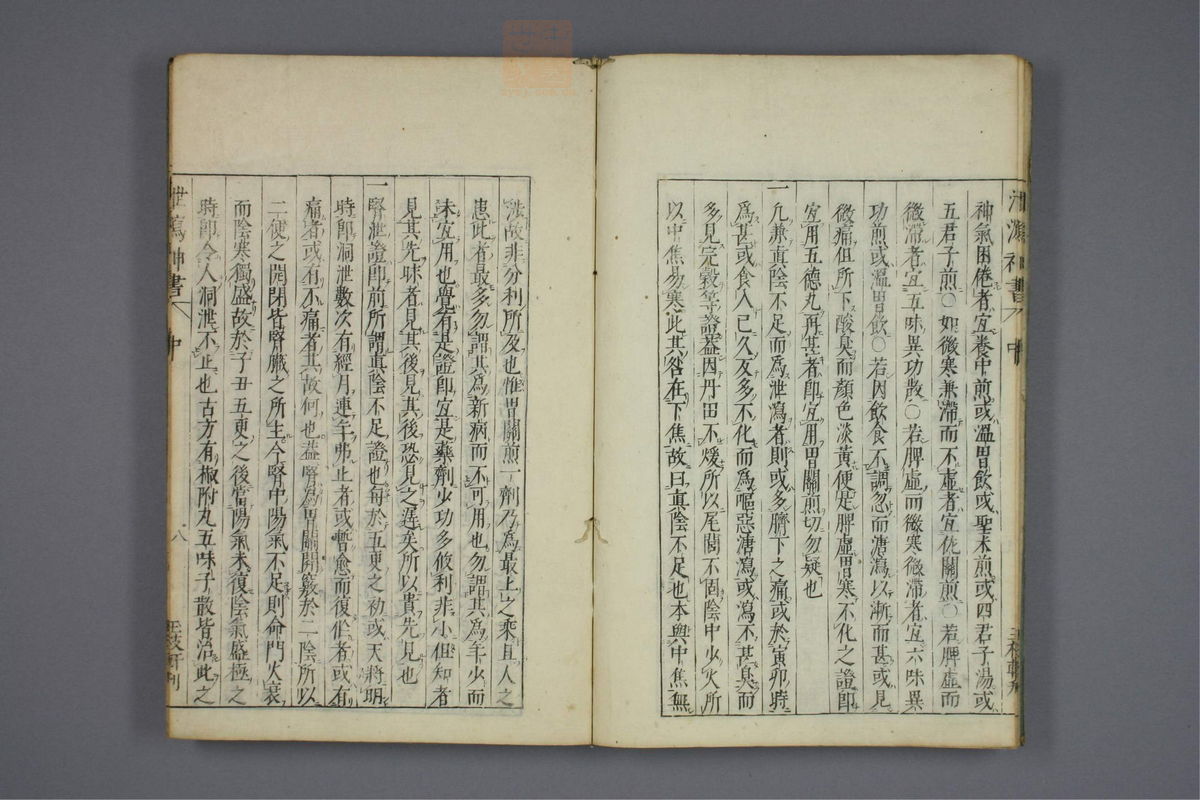 神氣困倦者宜養中煎或溫胃飲或聖朮煎或四君子湯或
五君子煎○如微寒兼滯而不虛者宜佐關煎○若脾虛而
微滯者宜五味異功散○若脾虛而微寒微滯者宜六味異
功煎或溫胃飲○若因飲食不調忽而溏瀉以漸而甚或見
微痛但所下酸臭而顏色淡黃便是脾虛胃寒不化之證即
宜用五德丸再甚者即宜用胃關煎切勿疑也
一凡兼真陰不足而為泄瀉者則或多臍下之痛或於寅卯時
為甚或食入已久反多不化而為嘔惡溏瀉或瀉不甚臭而
多見完穀等證蓋因丹田不煖所以尾閭不固陰中少火所
以中焦易寒此其咎在下焦故曰真陰不足也本與中焦無
涉故非分利所及也惟胃關煎一劑乃為最上之乘且人之
患此者最多勿謂其為新病而不可用也勿謂其為年少而
未宜用也覺有是證即宜是藥劑少功多攸利非小但知者
見其先昧者見其後見其後恐見之遲矣所以貴先見也
一腎泄證即前所謂真陰不足證也每於五更之初或天將明
時即洞泄數次有經月連年弗止者或暫愈而復作者或有
痛者或有不痛者其故何也蓋腎為胃關開竅於二陰所以
二便之開閉皆腎臟之所主今腎中陽氣不足則命門火衰
而陰寒獨盛故於子丑五更之後當陽氣未復陰氣盛極之
時即令人洞泄不止也古方有椒附丸五味子散皆治此之
泄瀉神書
中
八